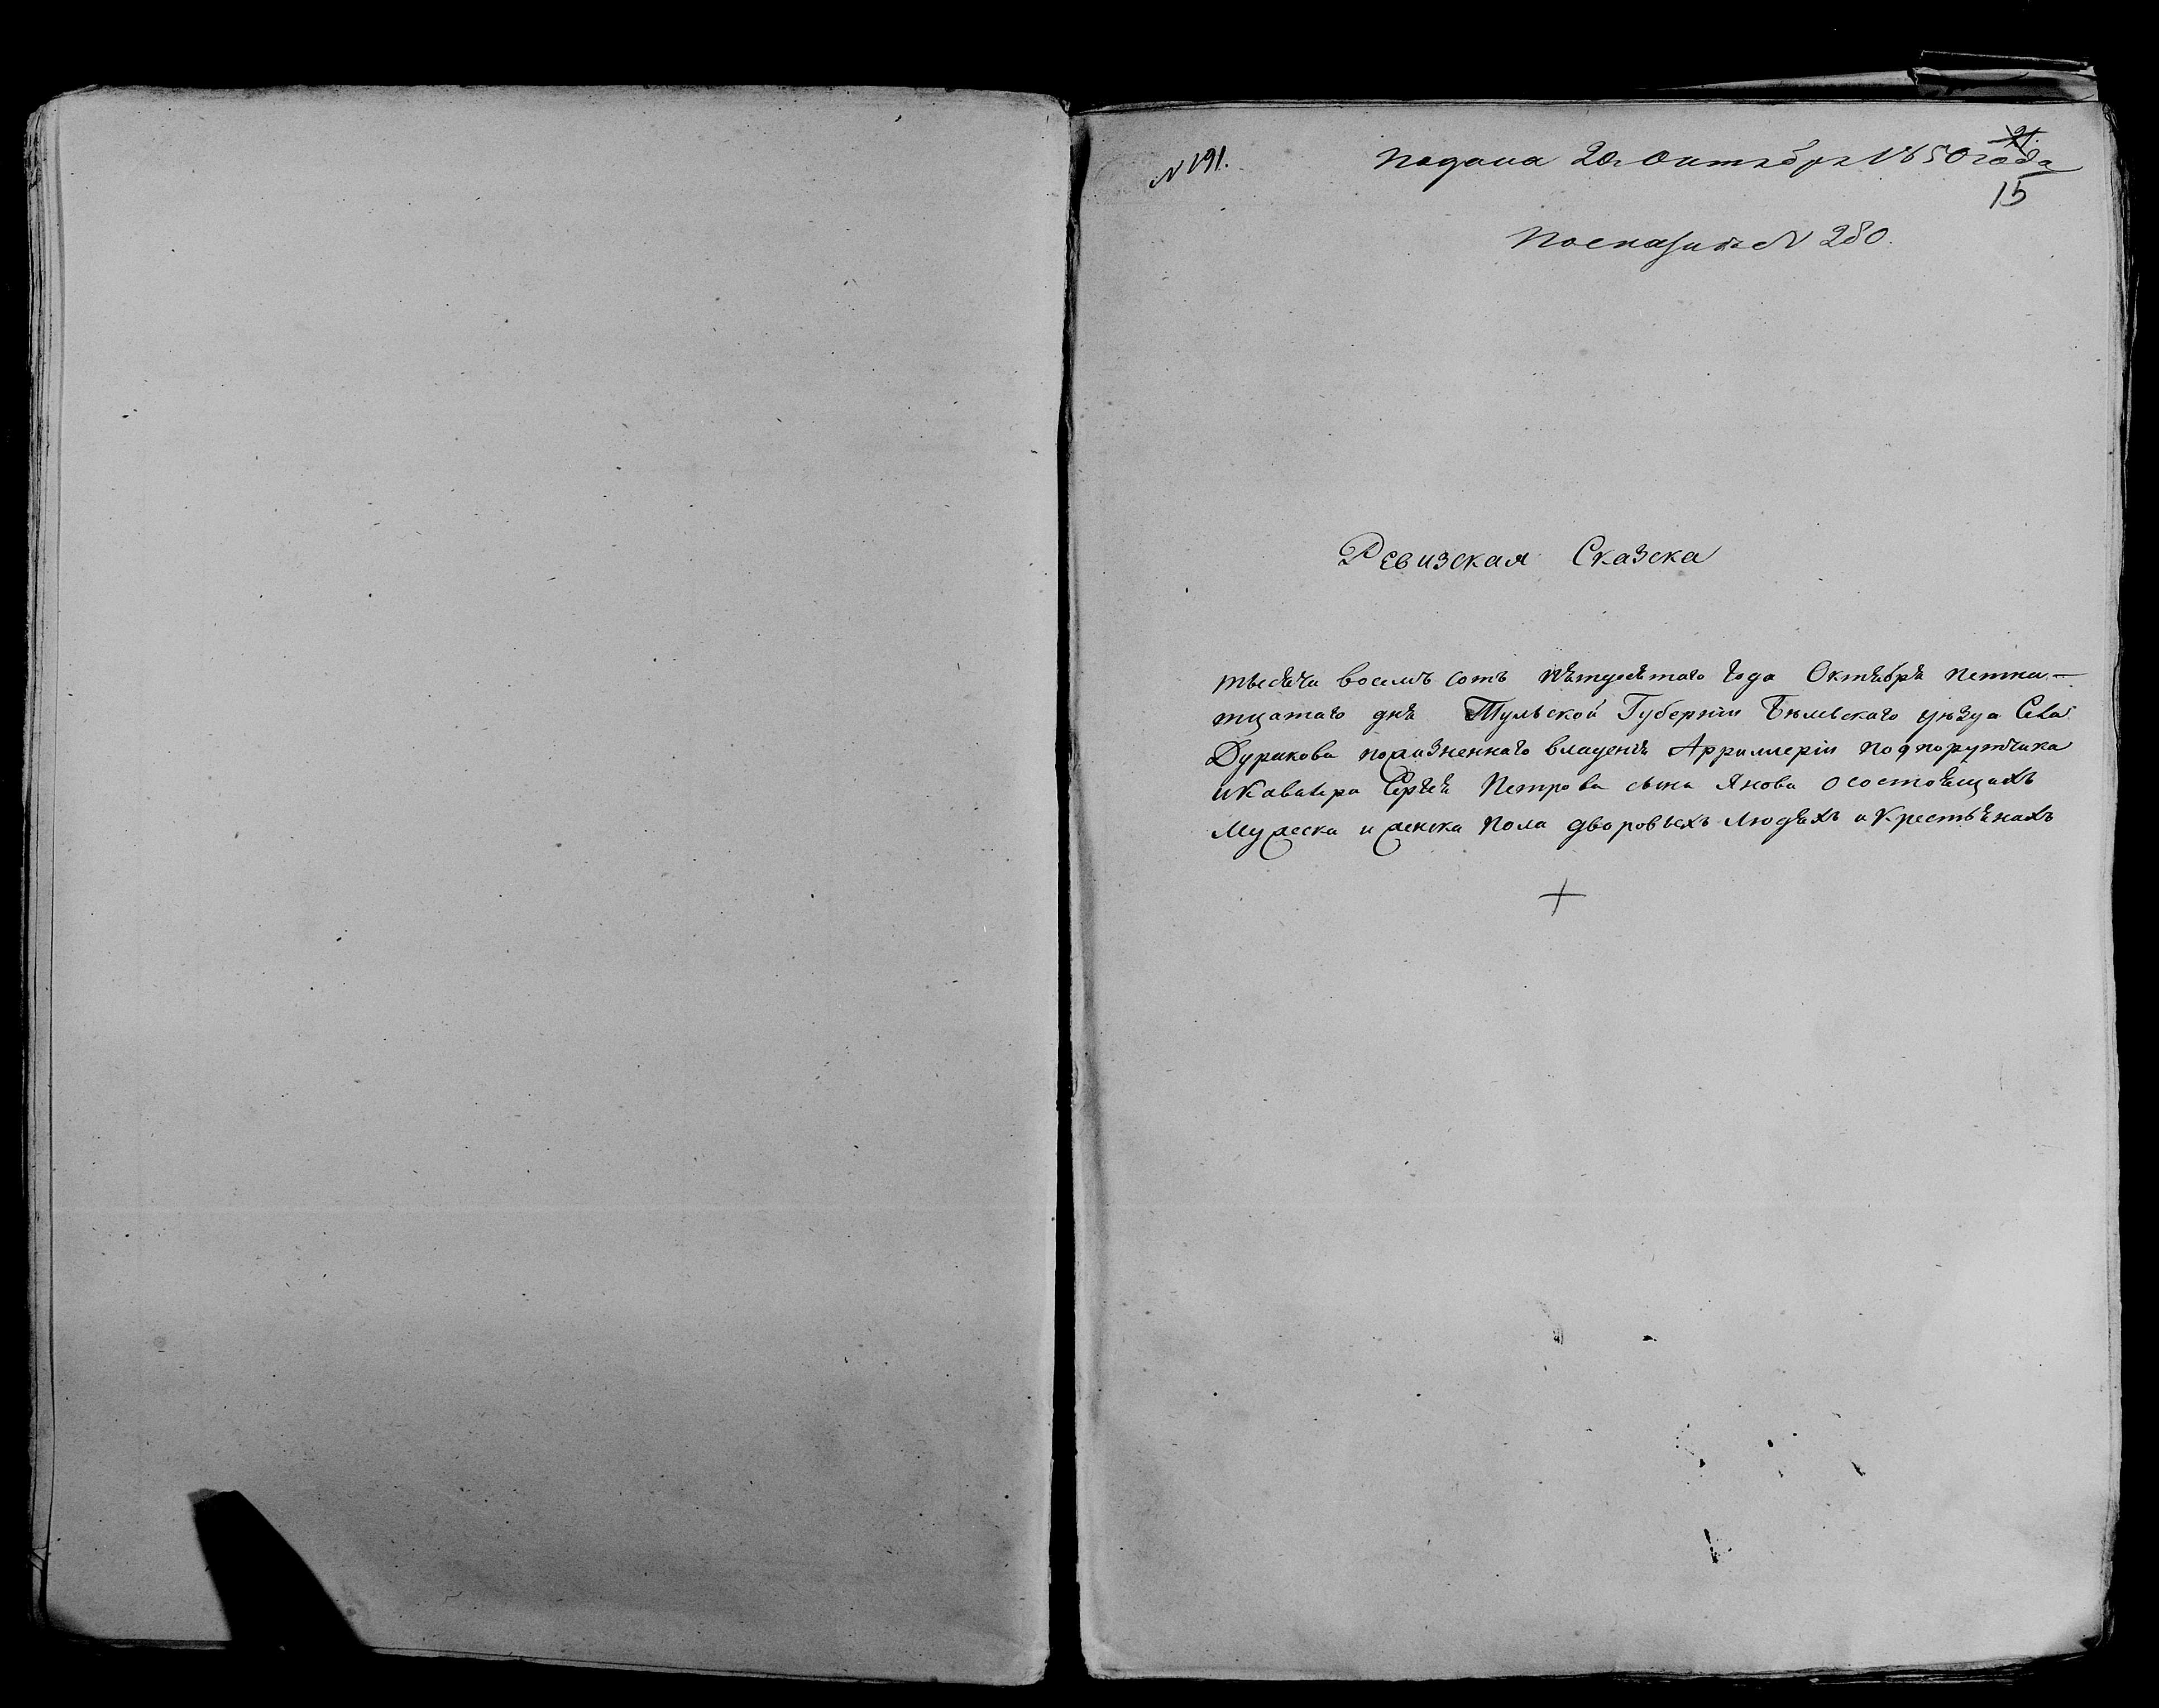 N 191.
Подана 20 Октября 1850 года
15
N 280.
Ревизская Сказска
тысѣча восемъ сотъ пѣтдесѣтаго года Октѣбрѣ петна-
тцатаго днѣ Тульской Губерніи Бѣлевскаго уѣзда Села
Дуракова пожизненнаго владѣнiѣ Артиллеріи подпорутчика
и Кавалера Сергѣѣ Петрова сына Янова о состоѣщихъ
Мужеска и женска пола дворовыхъ людѣхъ и крестьѣнахъ